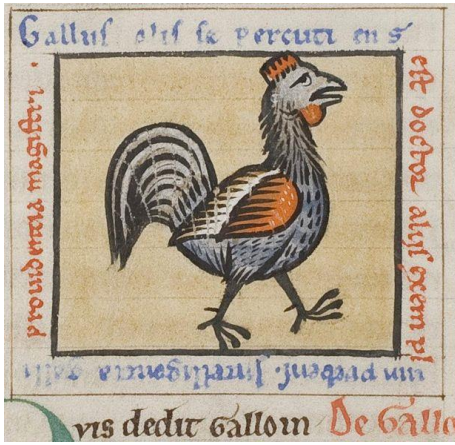 Gallus alis se percuti en s
est doctor alijs exempl
um prebens. Intelligentia galli
prouidentia magistri.
vis dedit Galloin De Gallo